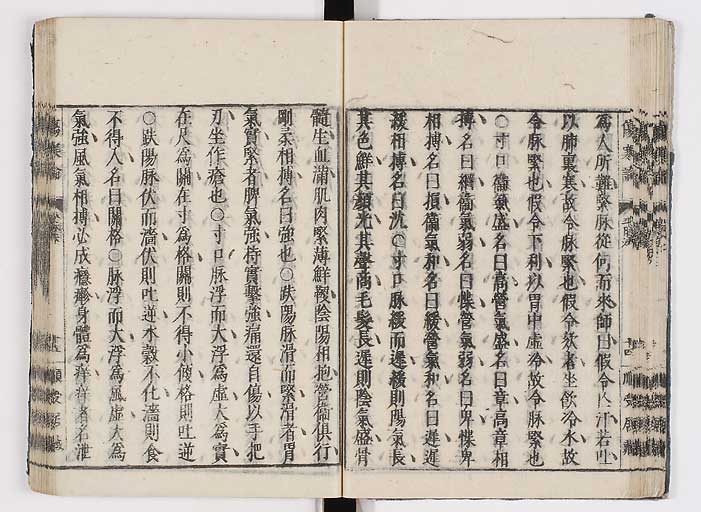 為人所難緊脉從何而來師曰假令亡汗若吐
以肺裏寒故令脉緊也假令欬者坐飲冷水故
令脉緊也假令下利以胃中虛冷故令脉緊也
○寸口衞氣盛名曰高營氣盛名曰章高章相
搏名曰綱衞氣弱名曰惵營氣弱名曰卑惵卑
相搏名曰損衞氣和名曰緩營氣和名曰遲遲
緩相搏名曰沈○寸口脉緩而遲緩則陽氣長
其色鮮其顏光其聲商毛髮長遲則陰氣盛骨
髓生血滿肌肉緊薄鮮鞕陰陽相抱營衞俱行
剛柔相搏名曰強也○趺陽脉滑而緊滑者胃
氣實緊者脾氣強持實擊強痛還自傷以手把
刃坐作瘡也○寸口脉浮而大浮為虛大為實
在尺為關在寸為格關則不得小便格則吐逆
○趺陽脉伏而濇伏則吐逆水穀不化濇則食
不得入名曰關格○脉浮而大浮為風虛大為
氣強風氣相搏必成癮疹身體為痒痒者名泄
傷寒論